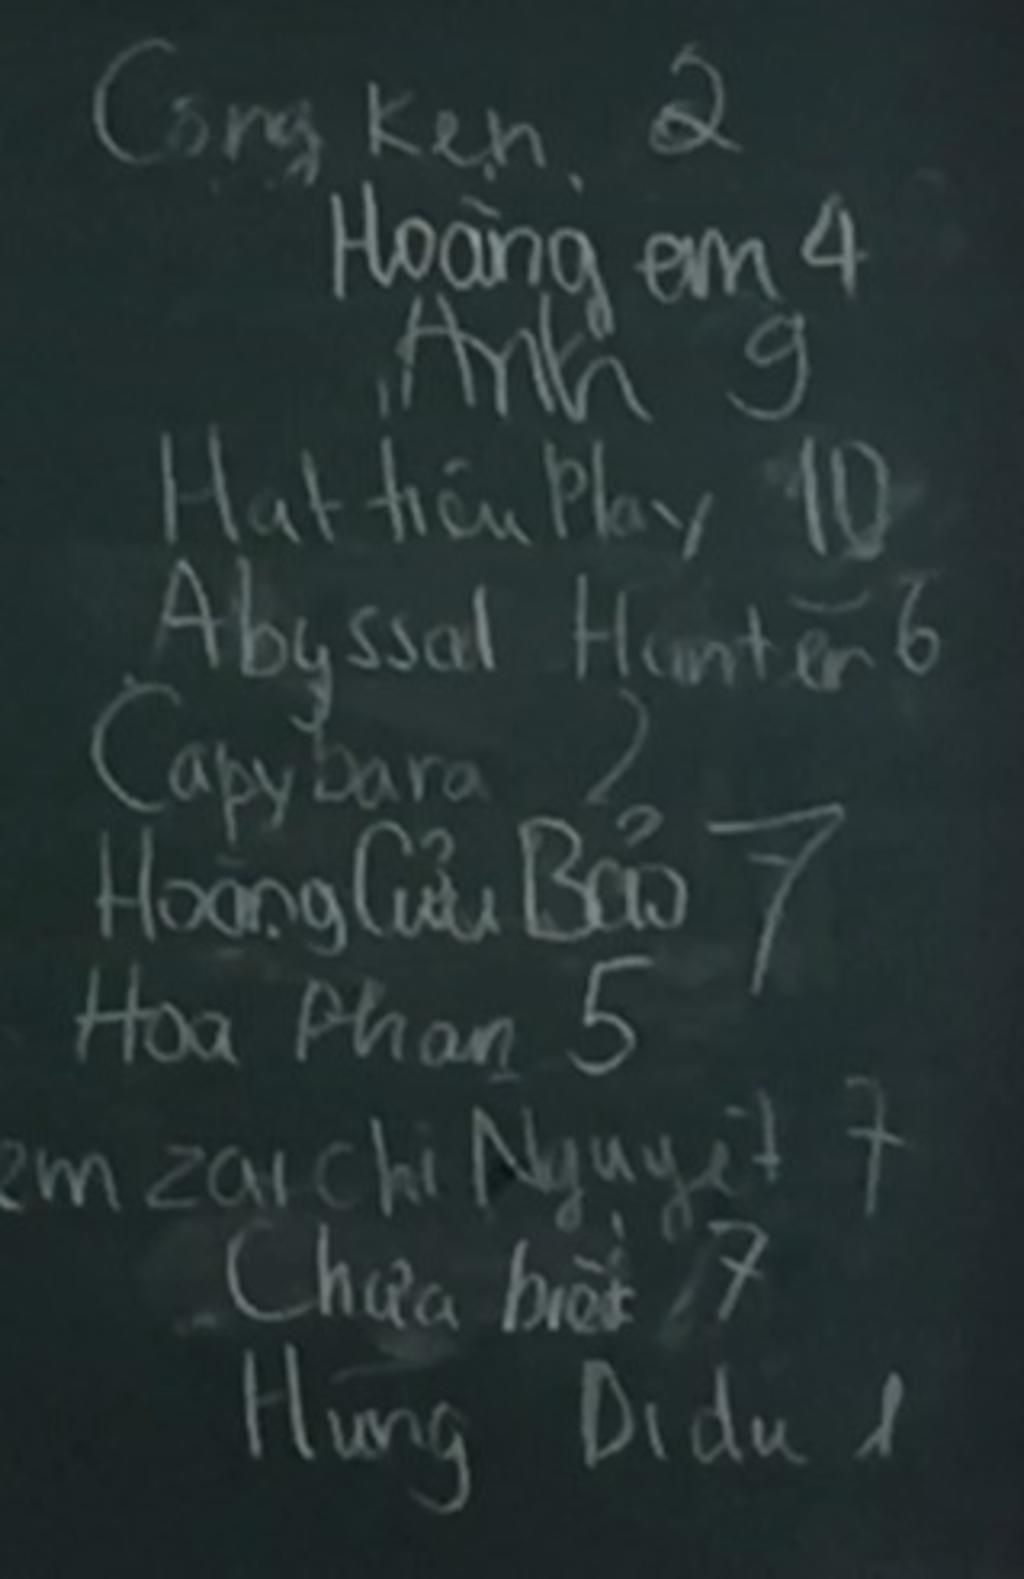 Công Kẹn 2
Hoàng em 4
Anh 9
Hat tiêu Play 10
Abyssal Hunter 6
Capybara 2
Hoàng Cửu Bảo 7
Hoa Phan 5
em zai chi Nguyệt 7
Chưa biết 7
Hùng Di du 1